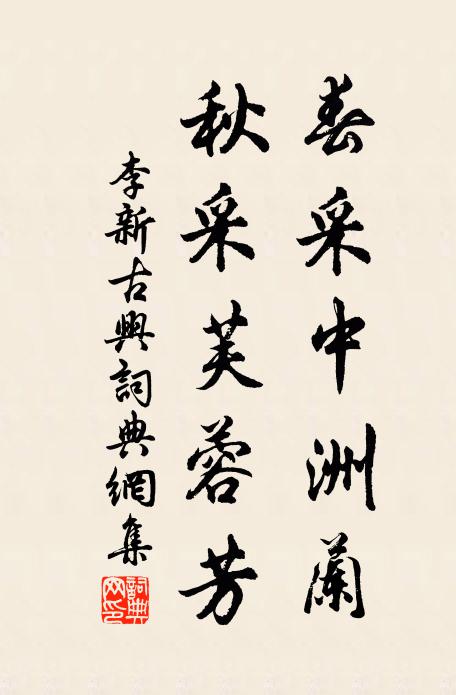 春采中洲蘭
秋采芙蓉芳
李新古興詞典網集
詞典网印